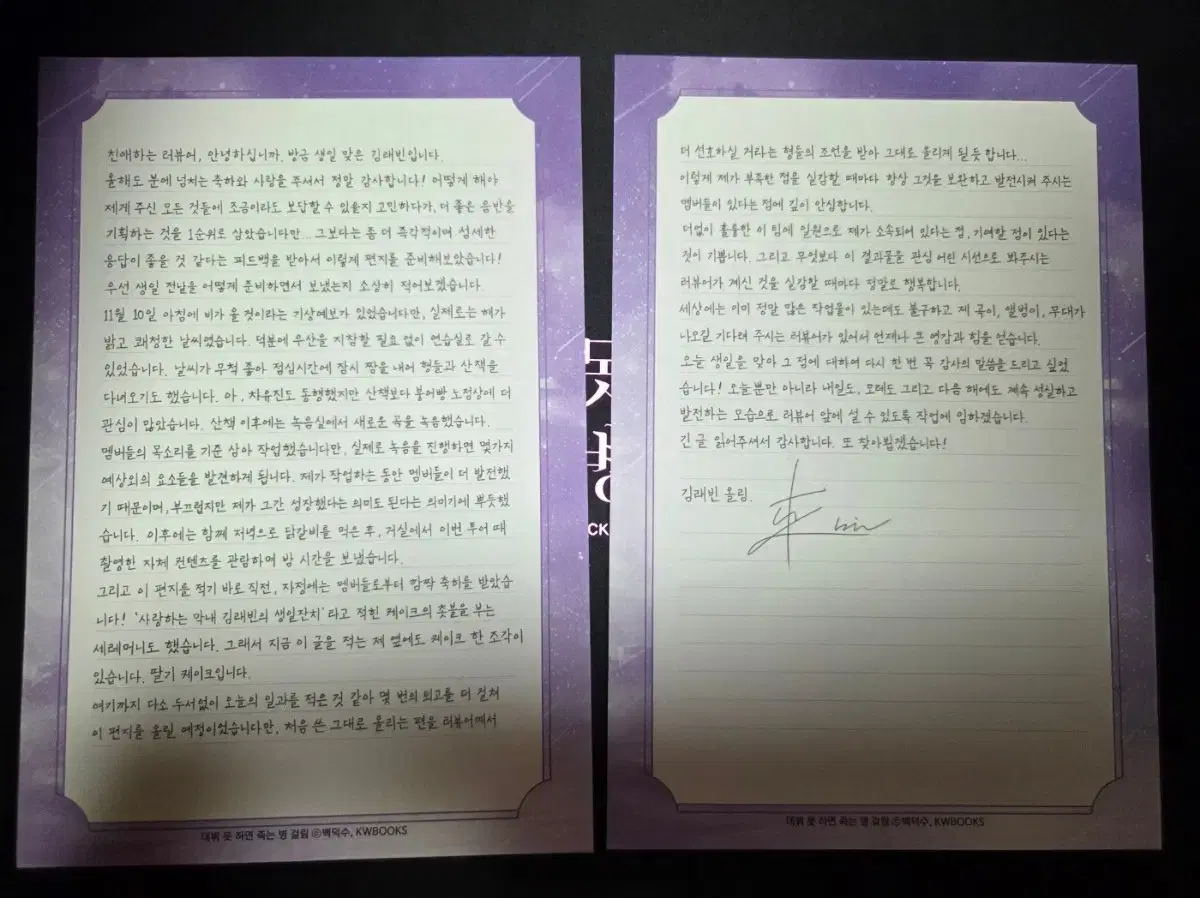 친애하는 러뷰어, 안녕하십니까. 방금 생일 맞은 김래빈입니다.
올해도 분에 넘치는 축하와 사랑을 주셔서 정말 감사합니다! 어떻게 해야
제게 주신 모든 것들에 조금이라도 보답할 수 있을지 고민하다가, 더 좋은 음반을
기획하는 것을 1순위로 삼았습니다만... 그보다는 좀 더 즉각적이며 섬세한
응답이 좋을 것 같다는 피드백을 받아서 이렇게 편지를 준비해보았습니다!
우선 생일 전날을 어떻게 준비하면서 보냈는지 소상히 적어보겠습니다.
11월 10일 아침에 비가 올 것이라는 기상예보가 있었습니다만, 실제로는 해가
밝고 쾌청한 날씨였습니다. 덕분에 우산을 지참할 필요 없이 연습실로 갈 수
있었습니다. 날씨가 무척 좋아 점심시간에 잠시 짬을 내어 형들과 산책을
다녀오기도 했습니다. 아, 차유진도 동행했지만 산책보다 붕어빵 노점상에 더
관심이 많았습니다. 산책 이후에는 녹음실에서 새로운 곡을 녹음했습니다.
멤버들의 목소리를 기준 삼아 작업했습니다만, 실제로 녹음을 진행하면 몇가지
예상외의 요소들을 발견하게 됩니다. 제가 작업하는 동안 멤버들이 더 발전했
기 때문이며, 부끄럽지만 제가 그간 성장했다는 의미도 된다는 의미기에 뿌듯했
습니다. 이후에는 함께 저녁으로 닭갈비를 먹은 후, 거실에서 이번 투어 때
촬영한 자체 컨텐츠를 관람하며 밤 시간을 보냈습니다.
그리고 이 편지를 적기 바로 직전, 자정에는 멤버들로부터 깜짝 축하를 받았습
니다! '사랑하는 막내 김래빈의 생일잔치'라고 적힌 케이크의 촛불을 부는
세레머니도 했습니다. 그래서 지금 이 글을 적는 제 옆에도 케이크 한 조각이
있습니다. 딸기 케이크입니다.
여기까지 다소 두서없이 오늘의 일과를 적은 것 같아 몇 번의 퇴고를 더 걸쳐
이 편지를 올릴 예정이었습니다만, 처음 쓴 그대로 올리는 편을 러뷰어께서
데뷔 못 하면 죽는 병 걸림 ⓒ백덕수, KWBOOKS
CK
더 선호하실 거라는 형들의 조언을 받아 그대로 올리게 될 듯 합니다...
이렇게 제가 부족한 점을 실감할 때마다 항상 그것을 보완하고 발전시켜 주시는
멤버들이 있다는 점에 깊이 안심합니다.
더없이 훌륭한 이 팀에 일원으로 제가 소속되어 있다는 점, 기여할 점이 있다는
것이 기쁩니다. 그리고 무엇보다 이 결과물을 관심 어린 시선으로 봐주시는
러뷰어가 계신 것을 실감할 때마다 정말로 행복합니다.
세상에는 이미 정말 많은 작업물이 있는데도 불구하고 제 곡이, 앨범이, 무대가
나오길 기다려 주시는 러뷰어가 있어서 언제나 큰 영감과 힘을 얻습니다.
오늘 생일을 맞아 그 점에 대하여 다시 한 번 꼭 감사의 말씀을 드리고 싶었
습니다! 오늘뿐만 아니라 내일도, 모레도 그리고 다음 해에도 계속 성실하고
발전하는 모습으로 러뷰어 앞에 설 수 있도록 작업에 임하겠습니다.
긴 글 읽어주셔서 감사합니다. 또 찾아뵙겠습니다!
김래빈 올림.
bin
데뷔 못 하면 죽는 병 걸림 ⓒ백덕수, KWBOOKS